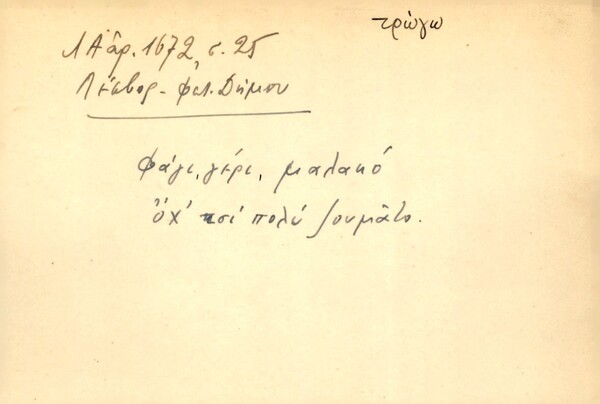 τρώγω
ΛΑ ἀρ. 1672, σ. 25
Λέσβος - Φιλ. Δήμου
Φάγι, γέρι, μαλακό
Ὄχ' τσί πολύ ζουμᾶτο.